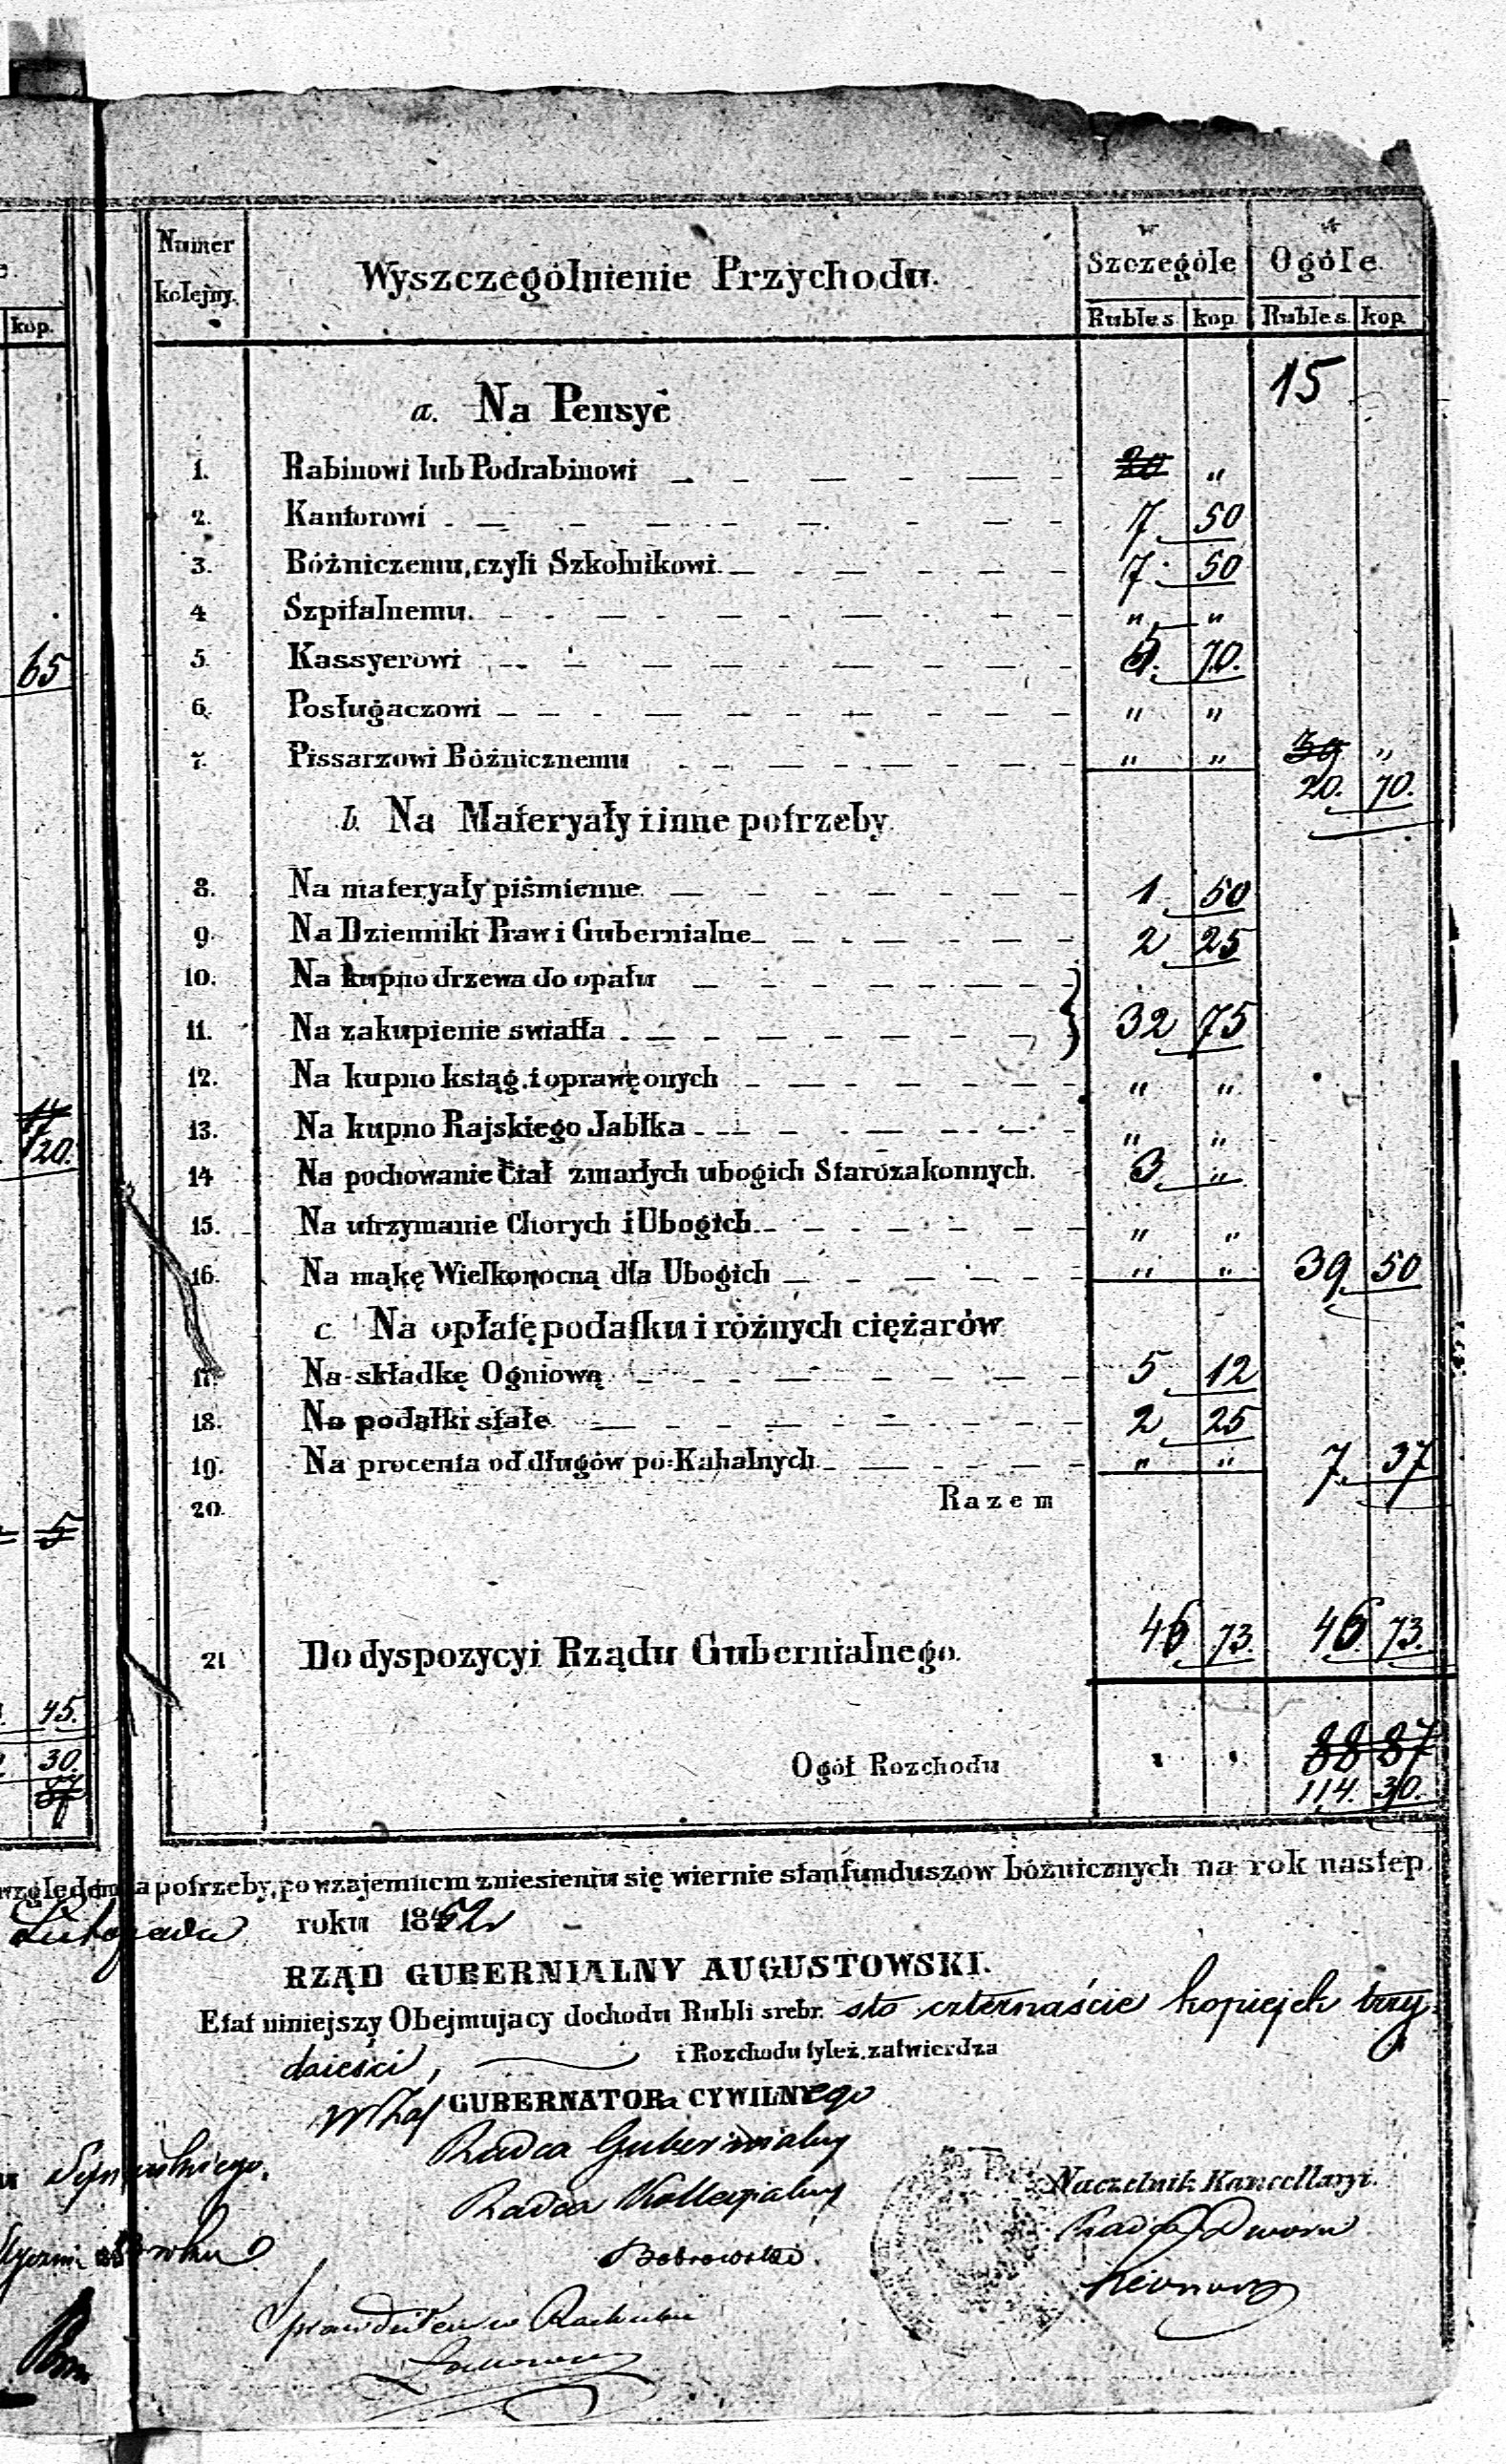 kop.
65
11
20.
5
45.
30.
87
Numer kolejny.
Wyszczególnienie Przychodu.
w Szczególe
w Ogóle.
Rubles kop. Rubles. kop.
15
a. Na Pensyę
1. Rabinowi lub Podrabinowi 20 "
2. Kantorowi 7 50
3. Bóżniczemu, czyli Szkolnikowi. 7. 50
4 Szpitalnemu. " "
5. Kassyerowi 5. 70.
6. Posługaczowi " "
7. Pissarzowi Bóżnicznemu " " 39 "
20. 70.
b. Na Materyały i inne potrzeby
8. Na materyały piśmienne. 1 50
9. Na Dzienniki Praw i Gubernialne 2 25
10. Na kupno drzewa do opału
11. Na zakupienie swiatła } 32 75
12. Na kupno ksiąg, i oprawę onych " "
13. Na kupno Rajskiego Jabłka " "
14 Na pochowanie Ciał zmarłych ubogich Starozakonnych. 3 "
15. Na utrzymanie Chorych i Ubogich. " "
16. Na mąkę Wielkonocną dla Ubogich " " 39 50
c. Na opłatę podatku i różnych ciężarów
17. Na składkę Ogniową 5 12
18. Na podatki stałe 2 25
19. Na procenta od długów po-Kahalnych " " 7 37
20. Razem
21 Do dyspozycyi Rządu Gubernialnego. 46 73. 46. 73.
Ogół Rozchodu 88 87
114. 30.
względem na potrzeby, po wzajemnem zniesieniu się wiernie stan funduszów bóżnicznych na rok następ.
Listopada roku 1852
RZĄD GUBERNIALNY AUGUSTOWSKI.
Etat niniejszy Obejmujacy dochodu Rubli srebr. sto czternaście kopiejek trzy
dzieści, i Rozchodu tyleż. zatwierdza
w Zas GUBERNATORa CYWILNego
Radca Gubernialny
Radca Kollegialny
Naczelnik Kancellaryi.
Radca Dworu
roku
Bobrowski.
Sprawdziłem w Rachubie